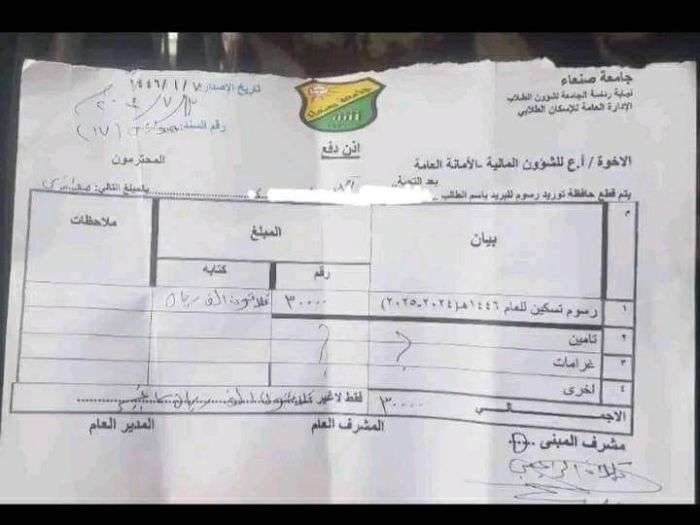 جامعة صنعاء
نيابة رئاسة الجامعة لشؤون الطلاب
الإدارة العامة للإسكان الطلابي
تاريخ الإصدار: ١٤٤٦/١/٧
رقم السند: (١٧)
اذن دفع
الاخوة / أ.ع للشؤون المالية -الأمانة العامة
المحترمون
بعد التحية
يتم قطع حافظة توريد رسوم للبريد باسم الطالب
بالمبلغ التالي:
م
بيان
المبلغ
ملاحظات
رقم
كتابه
١ رسوم تسكين للعام ١٤٤٦هـ (٢٠٢٤-٢٠٢٥) ٣٠٠٠٠ ثلاثون الف ريال
٢ تامين
٣ غرامات
٤ اخرى
الاجمـــالـــي ٣٠٠٠٠ فقط لاغير ثلاثون الف ريال
مشرف المبنى
المشرف العام
المدير العام